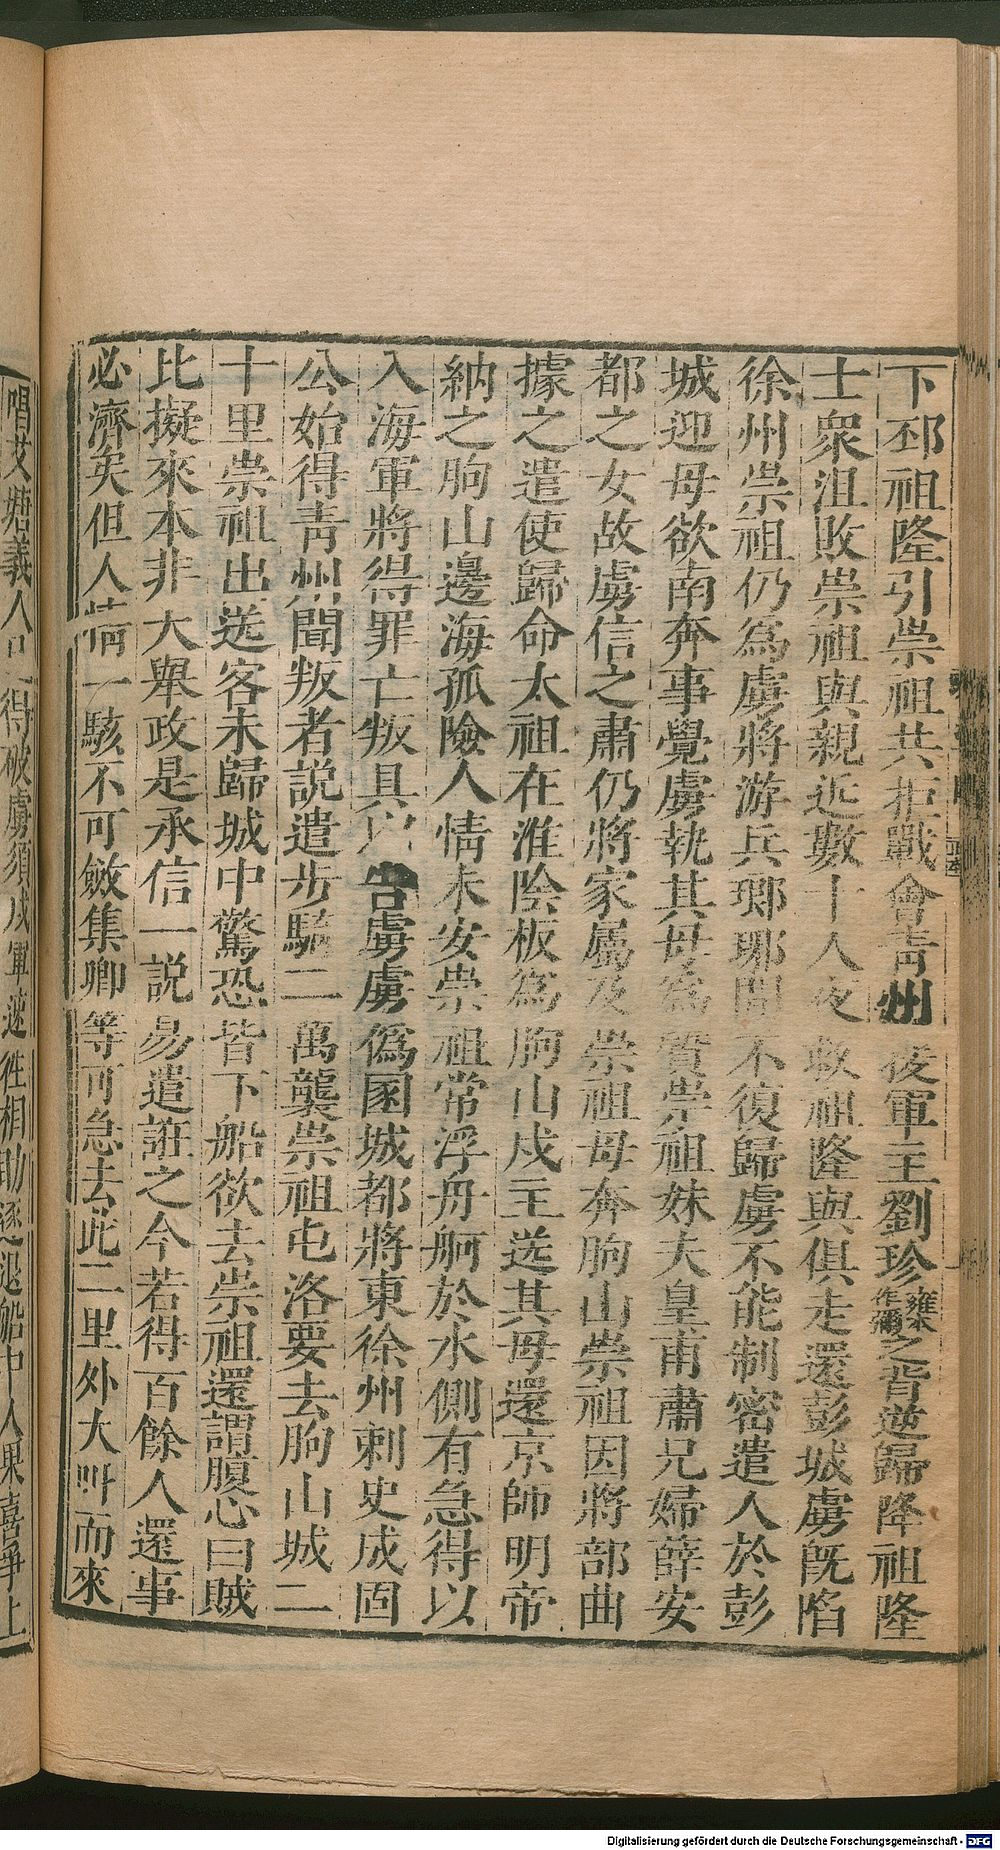 下邳祖隆引崇祖共拒戰會青州援軍主劉珍雍本作彌之背逆歸降祖隆
士衆沮敗崇祖與親近數十人夜救祖隆與俱走還彭城虜旣陷
徐州崇祖仍爲虜將游兵瑯琊間不復歸虜不能制密遣人於彭
城迎母欲南奔事覺虜執其母爲質崇祖妹夫皇甫肅兄婦薛安
都之女故虜信之肅仍將家屬及崇祖母奔朐山崇祖因將部曲
據之遣使歸命太祖在淮陰板爲朐山戍主送其母還京師明帝
納之朐山邊海孤險人情未安崇祖常浮舟舸於水側有急得以
入海軍將得罪亡叛具以告虜虜僞圂城都將東徐州刺史成固
公始得靑州聞叛者説遣步騎二萬襲崇祖屯洛要去朐山城二
十里崇祖出送客未歸城中驚恐皆下船欲去崇祖還謂腹心曰賊
比擬來本非大舉政是承信一説易遣誑之今若得百餘人還事
必濟矣但人情一駭不可斂集卿等可急去此二里外大呌而來
唱艾塘義人已得破虜須戍軍速往相助逐退船中人果喜爭上
Digitalisierung gefördert durch die Deutsche Forschungsgemeinschaft - DFG